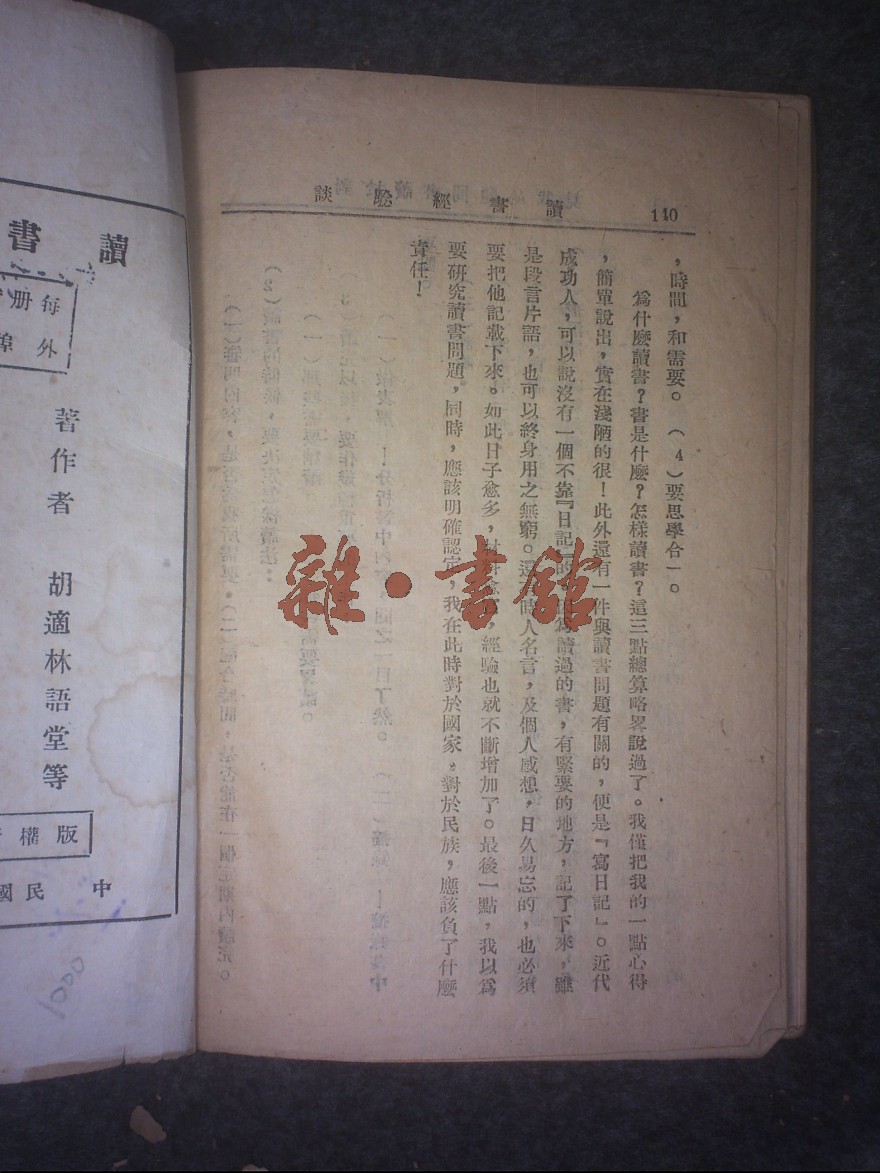 110
讀書經驗談
，時間，和需要。（4）要思學合一。
爲什麼讀書？書是什麼？怎樣讀書？這三點總算略畧說過了。我僅把我的一點心得
，簡單說出，實在淺陋的很！此外還有一件與讀書問題有關的，便是『寫日記』。近代
成功人，可以說沒有一個不靠『日記』的
讀過的書，有緊要的地方，記了下來，雖
是段言片語，也可以終身用之無窮。還
時人名言，及個人感想，日久易忘的，也必須
要把他記載下來。如此日子愈多，
，經驗也就不斷增加了。最後一點，我以爲
要研究讀書問題，同時，應該明確認定，我在此時對於國家。對於民族，應該負了什麼
責任！
雜·書館
讀書
每册
外埠
著作者 胡適林語堂等
版權
中民國
1000